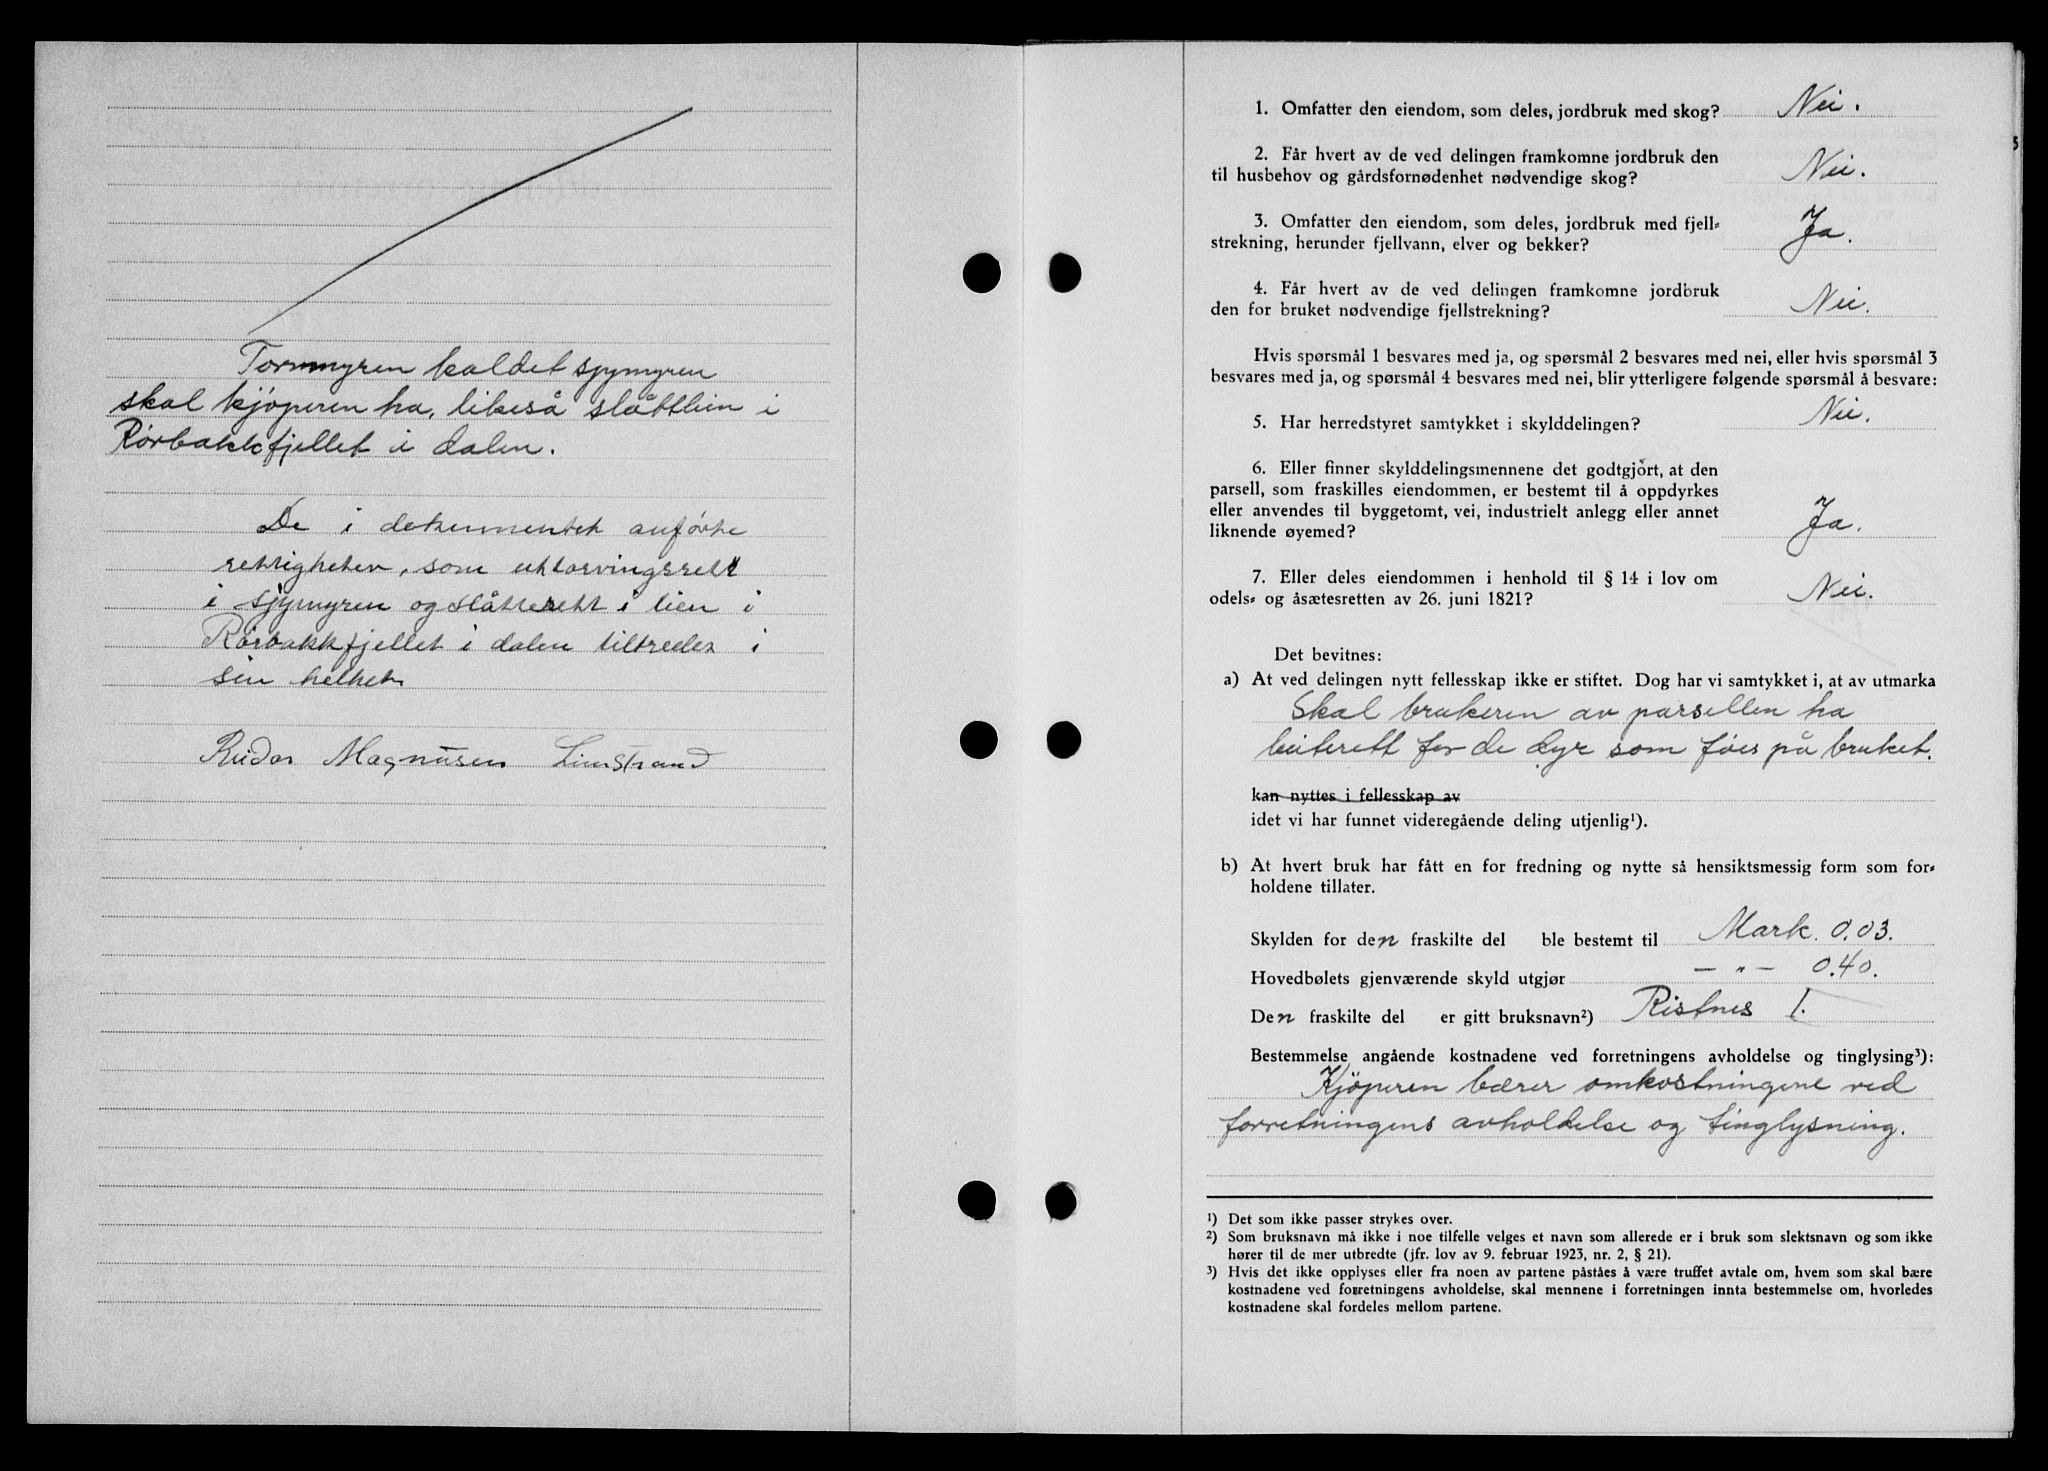 Tormmyren kaldet sjymyren
skal kjøperen ha, likeså slåttlien i
Rørbakkfjellet i dalen.
De i dokumentet anførte
rettigheter, som uttorvingsrett
i sjymyren og slåtterett i lien i
Rørbakkfjellet i dalen tiltredes i
sin helhet.
Reidar Magnusen Limstrand
1. Omfatter den eiendom, som deles, jordbruk med skog? Nei.
2. Får hvert av de ved delingen framkomne jordbruk den
til husbehov og gårdsfornødenhet nødvendige skog? Nei.
3. Omfatter den eiendom, som deles, jordbruk med fjell-
strekning, herunder fjellvann, elver og bekker? Ja.
4. Får hvert av de ved delingen framkomne jordbruk
den for bruket nødvendige fjellstrekning? Nei.
Hvis spørsmål 1 besvares med ja, og spørsmål 2 besvares med nei, eller hvis spørsmål 3
besvares med ja, og spørsmål 4 besvares med nei, blir ytterligere følgende spørsmål å besvare:
5. Har herredstyret samtykket i skylddelingen? Nei.
6. Eller finner skylddelingsmennene det godtgjort, at den
parsell, som fraskilles eiendommen, er bestemt til å oppdyrkes
eller anvendes til byggetomt, vei, industrielt anlegg eller annet
liknende øyemed? Ja.
7. Eller deles eiendommen i henhold til § 14 i lov om
odels- og åsætesretten av 26. juni 1821? Nei.
Det bevitnes:
a) At ved delingen nytt fellesskap ikke er stiftet. Dog har vi samtykket i, at av utmarka
Skal brukeren av parsellen ha
beiterett for de dyr som føes på bruket.
kan nyttes i fellesskap av
idet vi har funnet videregående deling utjenlig¹).
b) At hvert bruk har fått en for fredning og nytte så hensiktsmessig form som for-
holdene tillater.
Skylden for den fraskilte del ble bestemt til Mark. 0.03.
Hovedbølets gjenværende skyld utgjør - " - 0.40.
Den fraskilte del er gitt bruksnavn²) Ristnes 1.
Bestemmelse angående kostnadene ved forretningens avholdelse og tinglysing³):
Kjøperen bærer omkostningene ved
forretningens avholdelse og tinglysning.
¹) Det som ikke passer strykes over.
²) Som bruksnavn må ikke i noe tilfelle velges et navn som allerede er i bruk som slektsnavn og som ikke
hører til de mer utbredte (jfr. lov av 9. februar 1923, nr. 2, § 21).
³) Hvis det ikke opplyses eller fra noen av partene påståes å være truffet avtale om, hvem som skal bære
kostnadene ved forretningens avholdelse, skal mennene i forretningen innta bestemmelse om, hvorledes
kostnadene skal fordeles mellom partene.